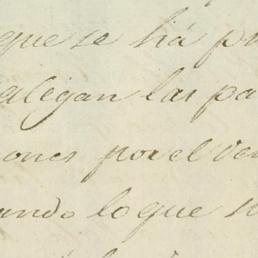 que se há p
alegan las pa
ones por el ve
ando lo que s